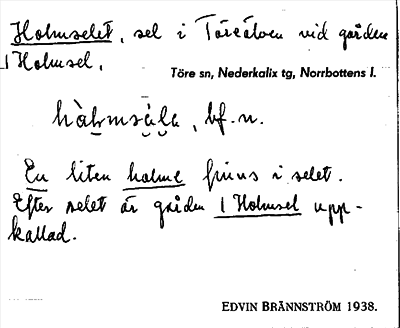 Holmselet, sel i Töreälven vid gården
1 Holmsel.
Töre sn, Nederkalix tg, Norrbottens l.
hàḷmsä̀lɐ, bf. n.
En liten holme finns i selet.
Efter selet är gården 1 Holmsel upp-
kallad.
EDVIN BRÄNNSTRÖM 1938.